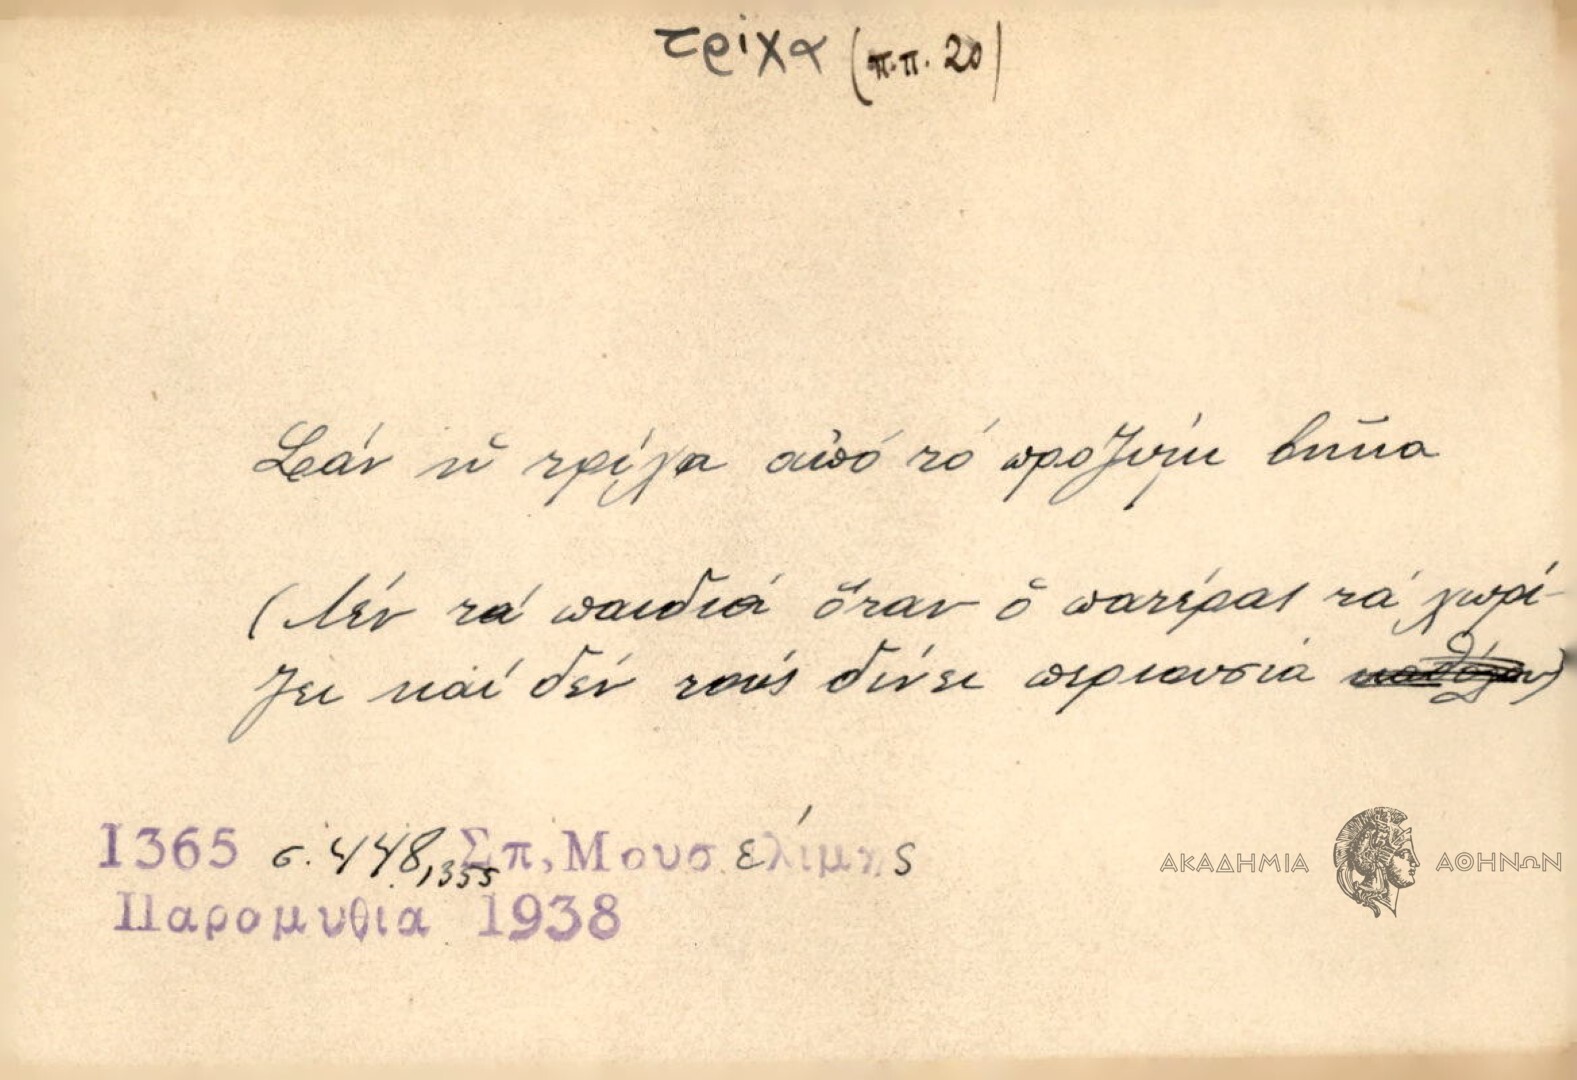 τρίχα (π.π. 20)
Σὰν ἡ τρίχα ἀπό τό προζύμι βγῆκα
(Λέν τά παιδιά ὅταν ὁ πατέρας τά χωρί-
ζει καί δέν τούς δίνει περιουσία καθόλου)
1365 σ. 448, 355 Σπ, Μουσελίμης
Παραμυθια 1938
ΑΚΑΔΗΜΙΑ ΑΘΗΝΩΝ